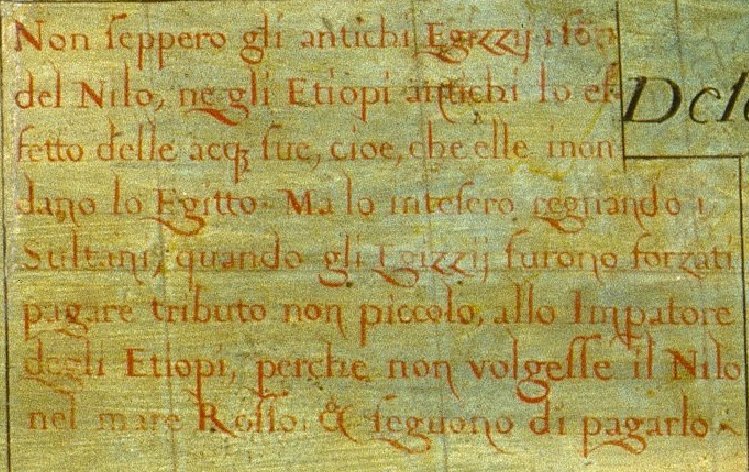 Non seppero gli antichi Egizzij i fon
del Nilo, ne gli Etiopi antichi lo ef-
fetto delle acq; sue, cioe, che elle inon
dano lo Egitto. Ma lo intesero regnando i
Sultani, quando gli Egizzij furono forzati
pagare tributo non piccolo, allo Impatore
degli Etiopi, perche non volgesse il Nilo
nel mare Rosso: & seguono di pagarlo